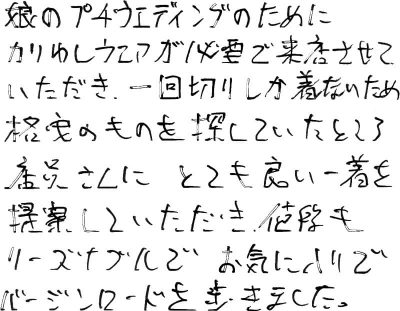 娘のプチウエディングのために
カリゆしウエアが必要で来店させて
いただき、一回切りしか着ないため
格安のものを探していたところ
店員さんに とても良い一着を
提案していただき、値段も
リーズナブルで お気に入りで
バージンロードを歩きました。